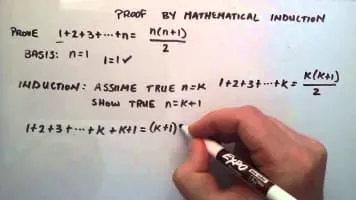 PROOF BY MATHEMATICAL INDUCTION
PROVE 1+2+3+···+n= n(n+1)/2
BASIS: n=1 1=1✓
INDUCTION: ASSUME TRUE n=K 1+2+3+···+K = K(K+1)/2
SHOW TRUE n=K+1
1+2+3+···+K+K+1=(K+1)
EXPO